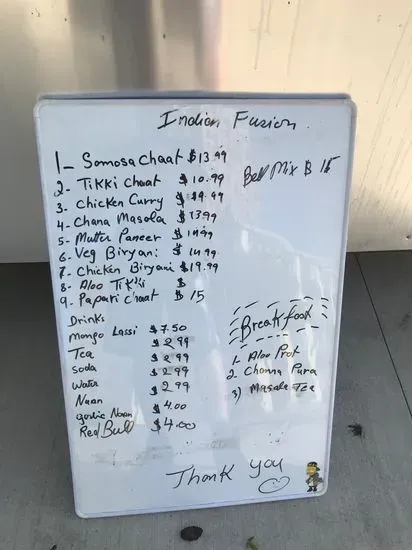 Indian Fusion
1- Somosa Chaat $13.99
2- Tikki Chaat $10.99
Bell Mix $ 15
3- Chicken Curry $19.99
4- Chana Masala $13.99
5- Mutter Paneer $14.99
6- Veg Biryani $14.99
7- Chicken Biryani $19.99
8- Aloo Tikki $
9- Papari Chaat $15
Drinks
Mango Lassi $7.50
Tea $2.99
Soda $2.99
Water $2.99
Naan
garlic Naan $4.00
Red Bull $4.00
Breakfast
1- Aloo Prot
2- Channa Pura
3) Masala Tea
Thank you